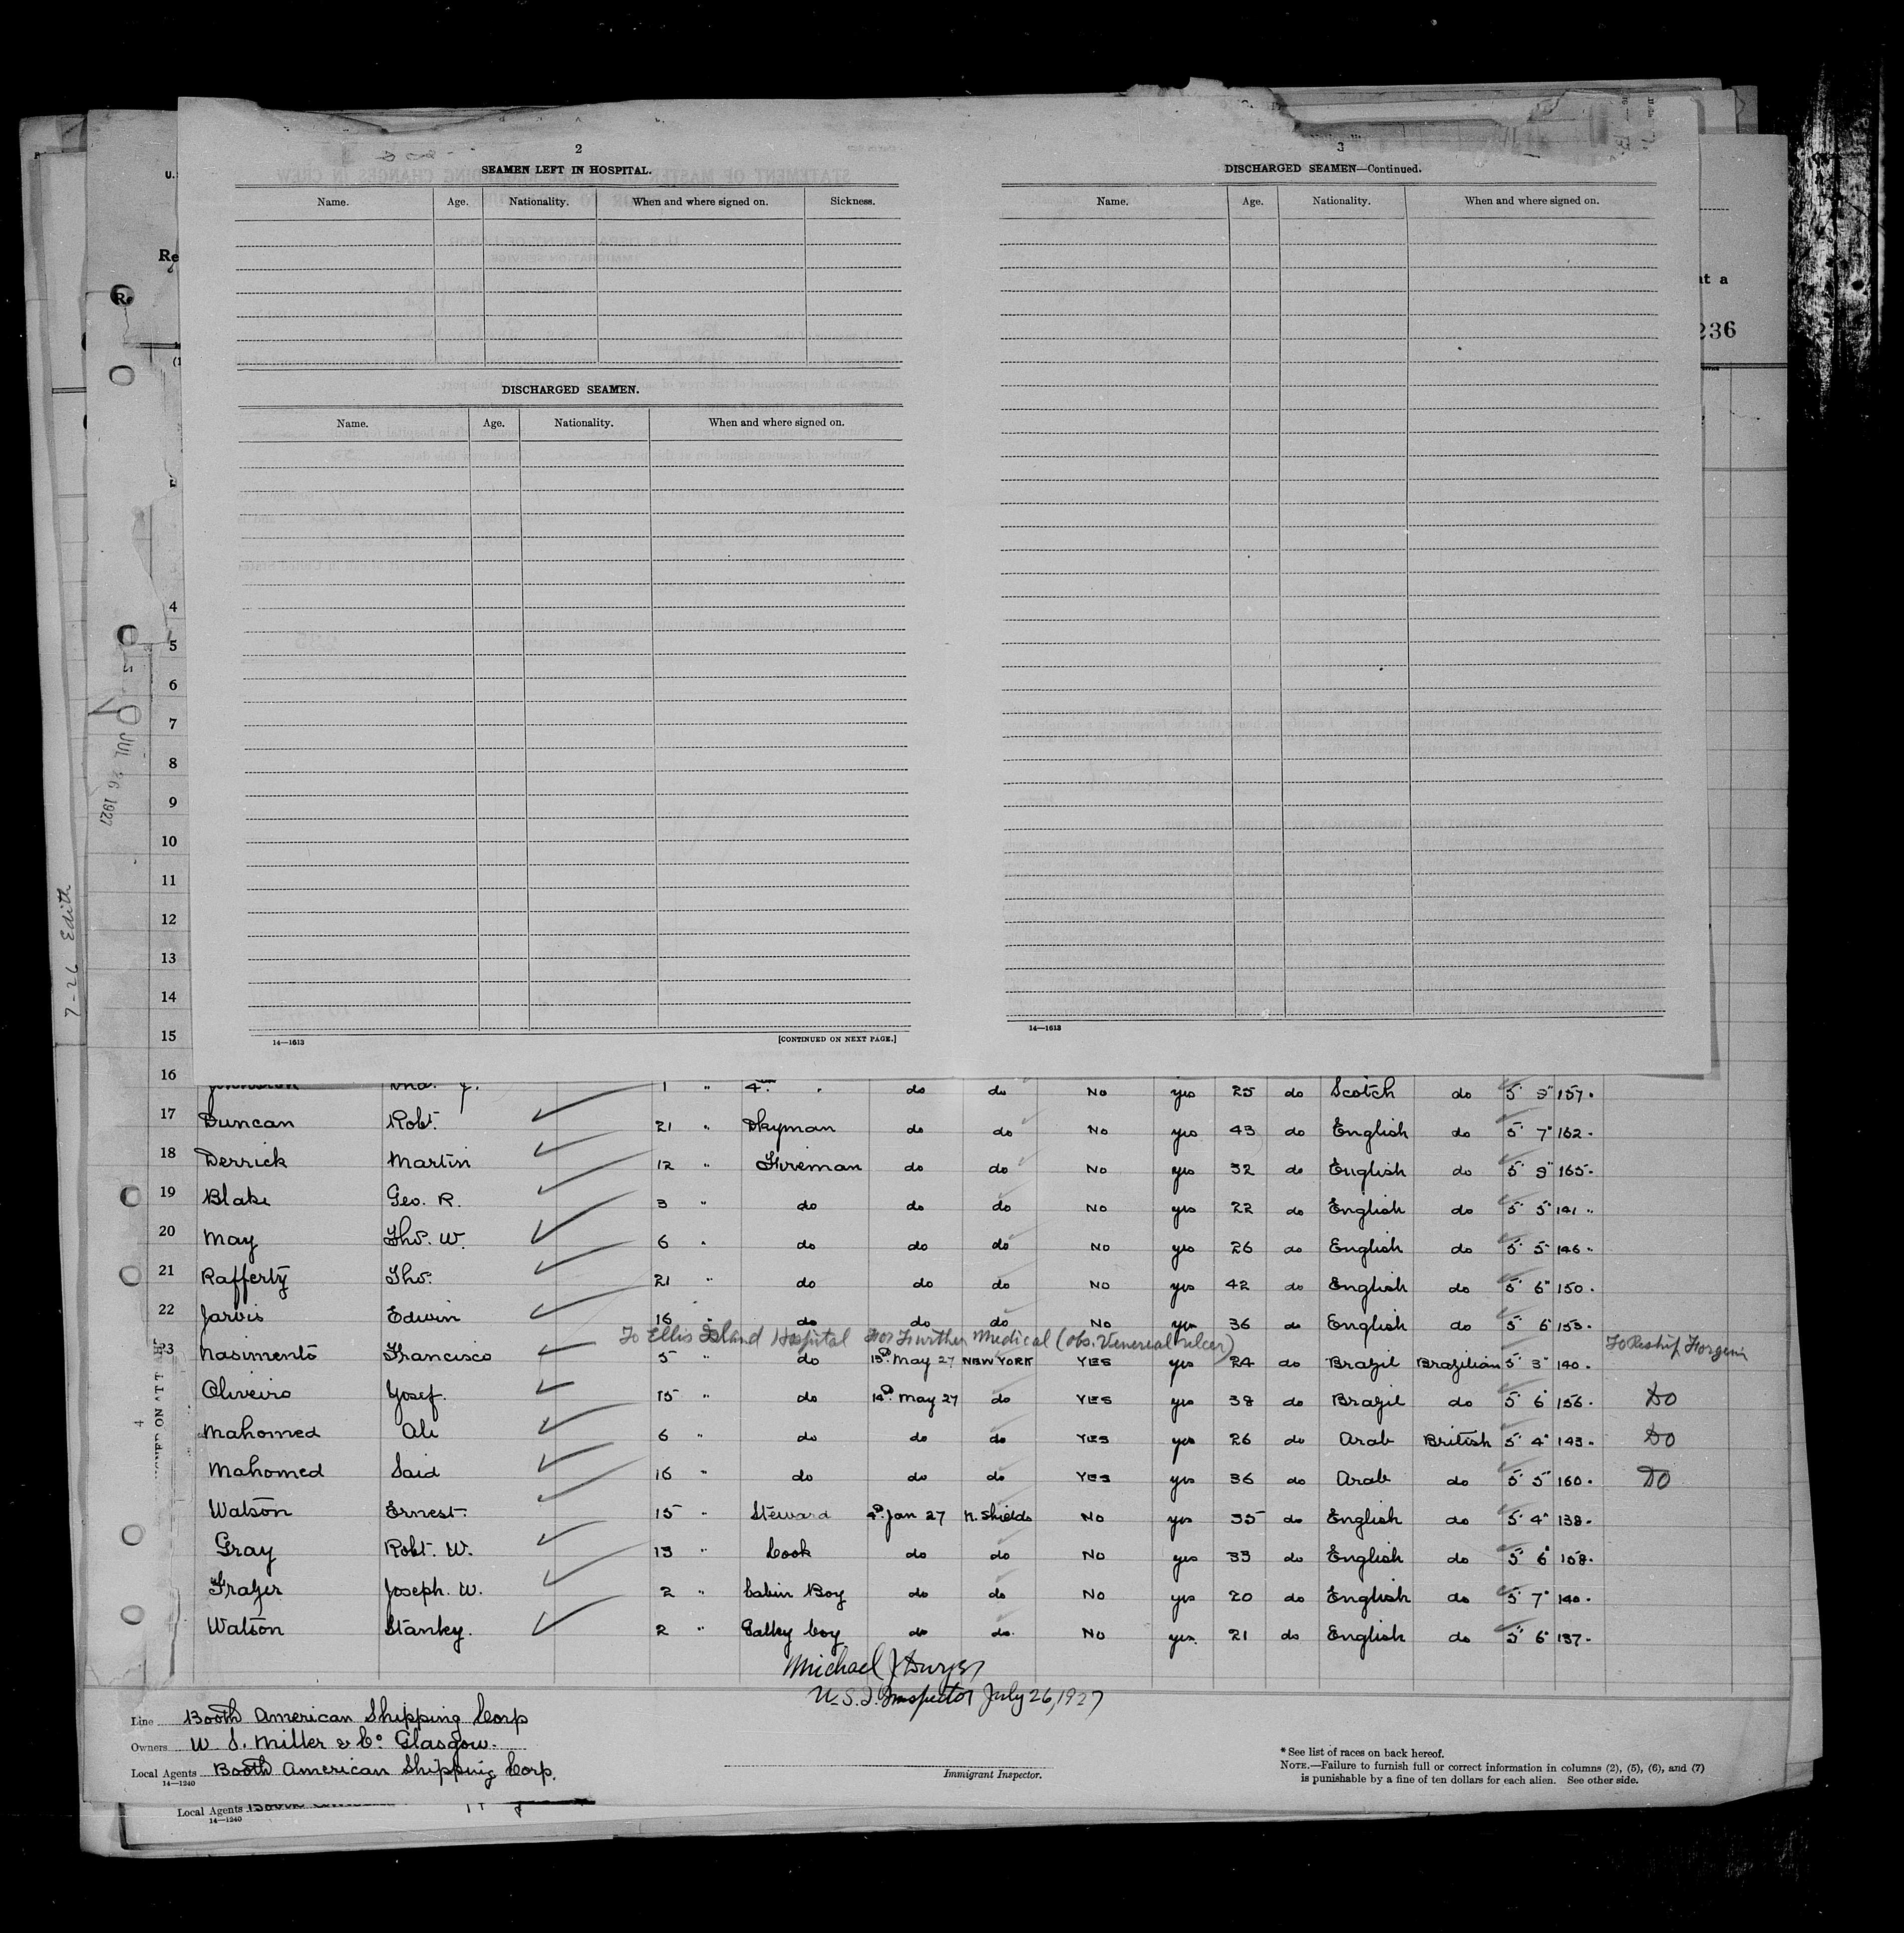 2
SEAMEN LEFT IN HOSPITAL.
Name. Age. Nationality. When and where signed on. Sickness.
DISCHARGED SEAMEN.
Name. Age. Nationality. When and where signed on.
14—1613 [CONTINUED ON NEXT PAGE.]
3
DISCHARGED SEAMEN—Continued.
Name. Age. Nationality. When and where signed on.
14—1613
U.S.
Re
at a
236
JUL 26 1927
7-26 Edith
4
5
6
7
8
9
10
11
12
13
14
15
16 1 " 4 do do No yes 25 do Scotch do 5' 9" 157.
17 Duncan Robt. 21 " Dkyman do do No yes 43 do English do 5' 7" 162.
18 Derrick Martin 12 " Fireman do do No yes 32 do English do 5' 9" 165.
19 Blake Geo. R. 3 " do do do No yes 22 do English do 5' 5" 141 "
20 May Tho. W. 6 " do do do No yes 26 do English do 5' 5 146 "
21 Rafferty Tho. 21 " do do do No yes 42 do English do 5' 6" 150.
22 Jarvis Edwin 16 " do do do No yes 36 do English do 5' 6" 153.
To Ellis Island Hospital For Further Medical (obs. Venereal ulcer)
23 Nasimento Francisco 5 " do 13th May 27 NEW YORK YES yes 24 do Brazil Brazilian 5' 3" 140. To Reship Foreign
Oliveiro Yosef. 15 " do 14th May 27 do YES yes 38 do Brazil do 5' 6" 156. Do
Mahomed Ali 6 " do do do YES yes 26 do Arab British 5' 4" 143 " Do
Mahomed Said 16 " do do do YES yes 36 do Arab do 5' 5" 160. Do
Watson Ernest. 15 " Steward 4th Jan 27 N. Shields No yes 35 do English do 5' 4" 138.
Gray Robt. W. 13 " Cook do do No yes 33 do English do 5' 6" 158.
Frazer Joseph. W. 2 " Cabin Boy do do No yes 20 do English do 5' 7" 140.
Watson Stanley. 2 " Galley boy do do. No yes. 21 do English do 5' 6" 137.
Michael J Dwyer
U.S.I. Inspector July 26, 1927
Line Booth American Shipping Corp
Owners W. S. Miller & Co Glasgow.
Local Agents Booth American Shipping Corp.
14—1240
Immigrant Inspector.
* See list of races on back hereof.
NOTE.—Failure to furnish full or correct information in columns (2), (5), (6), and (7)
is punishable by a fine of ten dollars for each alien. See other side.
Local Agents
14—1240